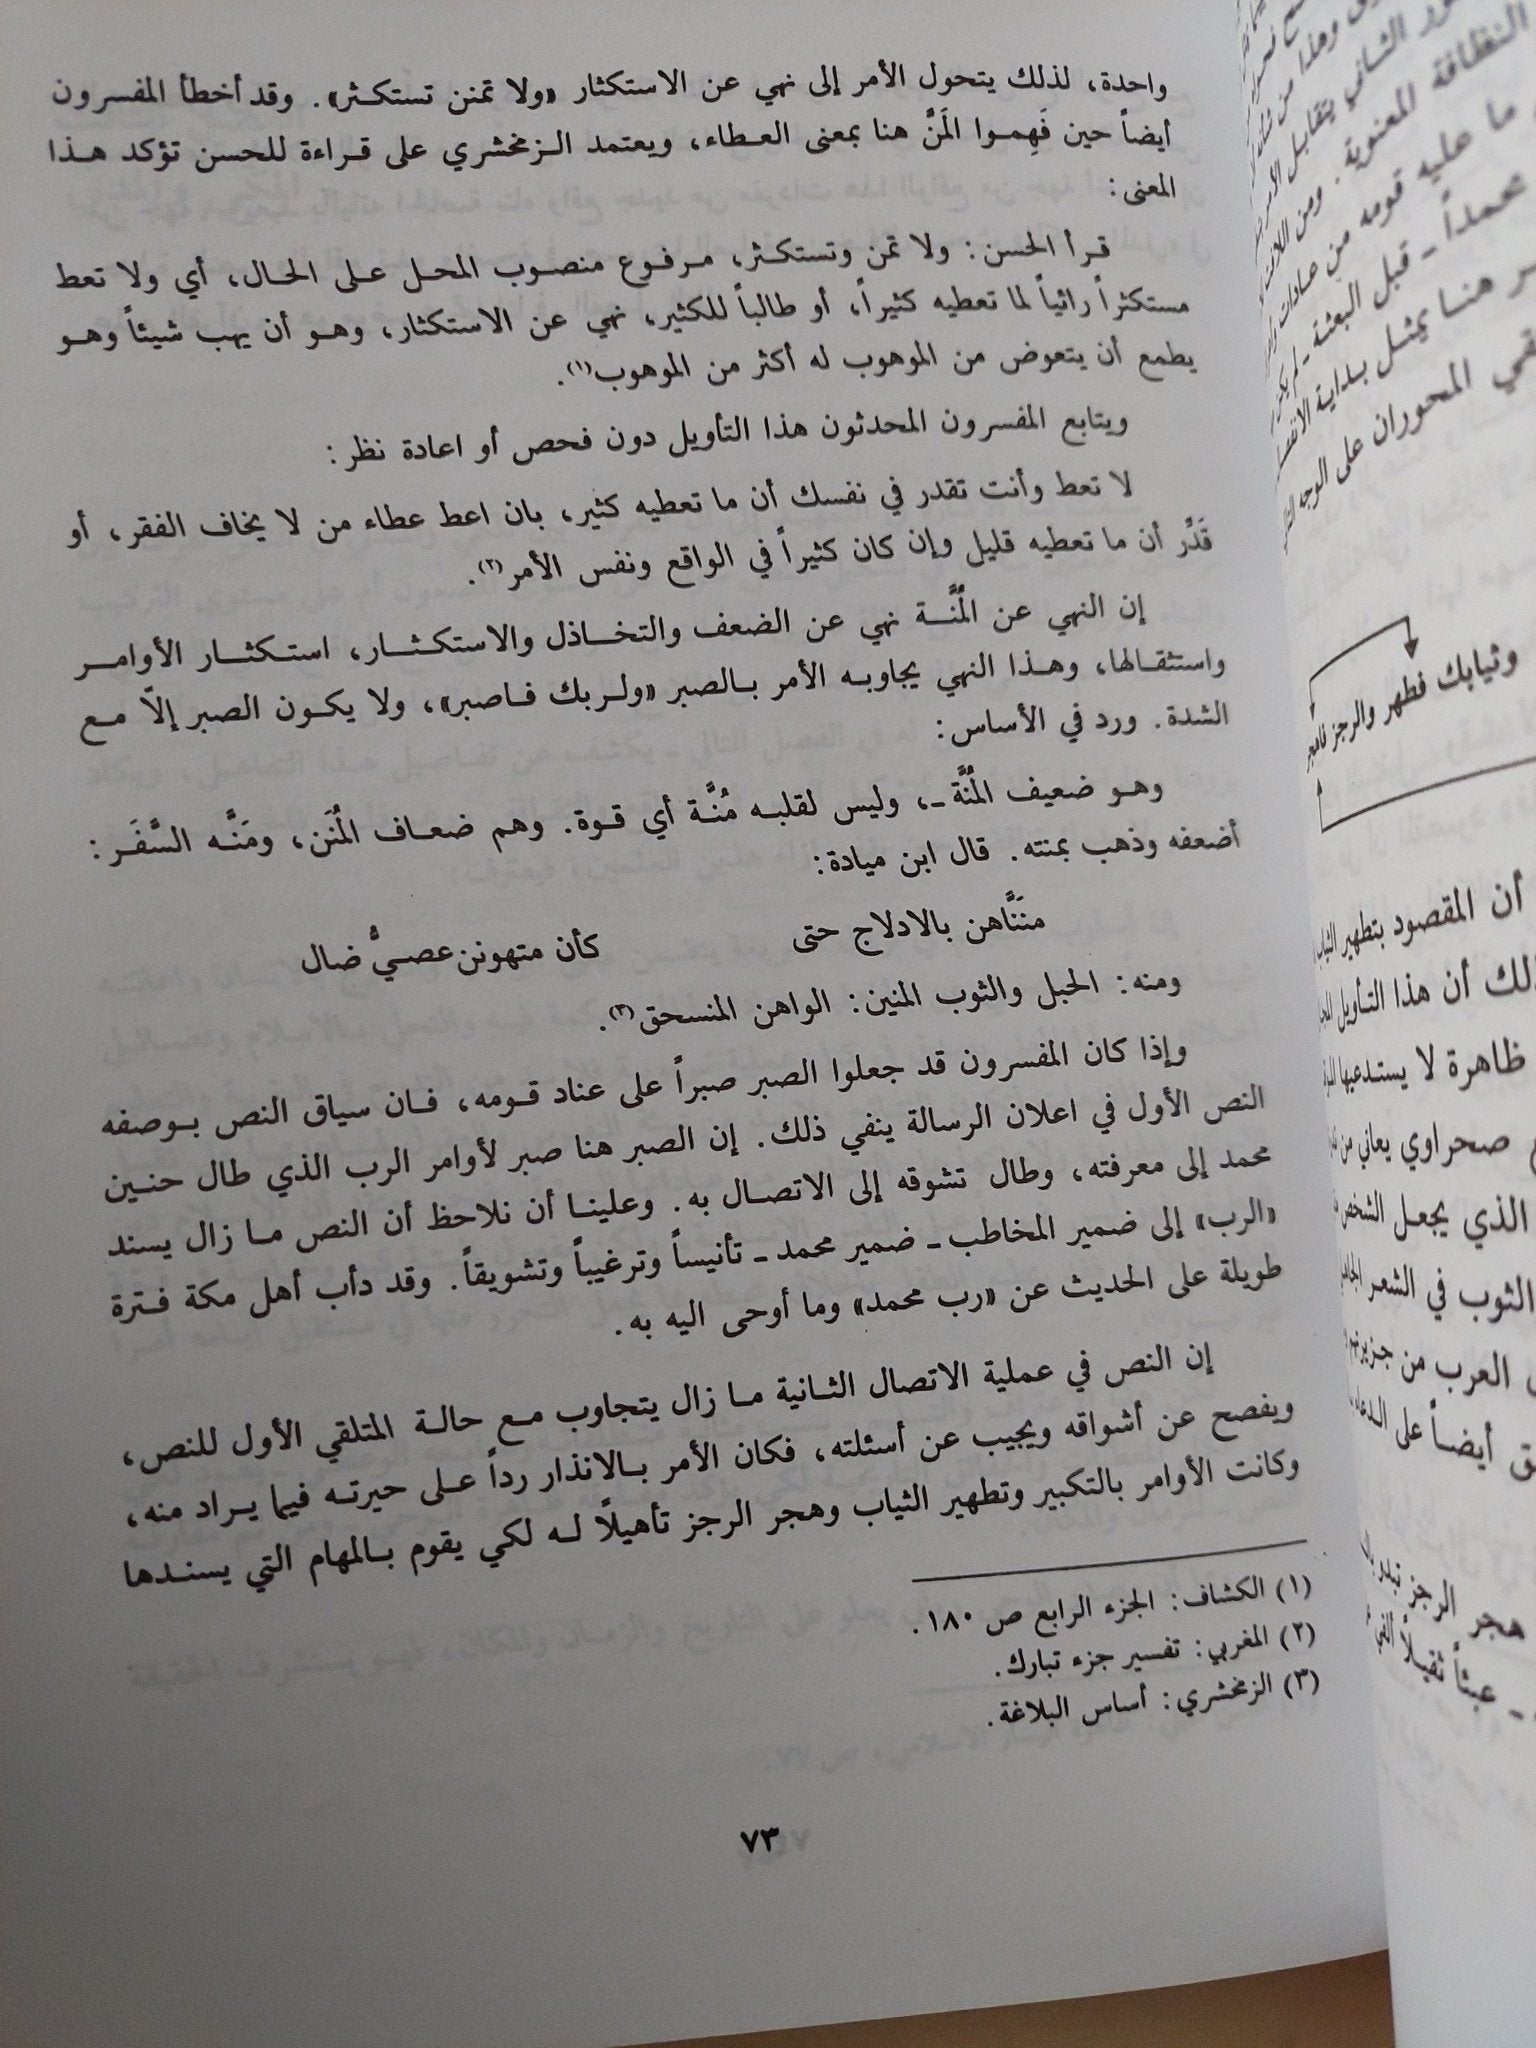 واحدة، لذلك يتحول الأمر إلى نهي عن الاستكثار «ولا تمنن تستكثر». وقد أخطأ المفسرون
أيضاً حين فَهِموا المَنَّ هنا بمعنى العطاء، ويعتمد الزمخشري على قراءة للحسن تؤكد هذا
المعنى:
قرأ الحسن: ولا تمن وتستكثر، مرفوع منصوب المحل على الحال، أي ولا تعط
مستكثراً رائياً لما تعطيه كثيراً، أو طالباً للكثير، نهي عن الاستكثار، وهو أن يهب شيئاً وهو
يطمع أن يتعوض من الموهوب له أكثر من الموهوب(١).
ويتابع المفسرون المحدثون هذا التأويل دون فحص أو اعادة نظر:
لا تعط وأنت تقدر في نفسك أن ما تعطيه كثير، بان اعط عطاء من لا يخاف الفقر، أو
قَدِّر أن ما تعطيه قليل وإن كان كثيراً في الواقع ونفس الأمر(٢).
إن النهي عن المُنَّة نهي عن الضعف والتخاذل والاستكثار، استكثار الأوامر
واستثقالها، وهذا النهي يجاوبه الأمر بالصبر «ولربك فاصبر»، ولا يكون الصبر إلاّ مع
الشدة. ورد في الأساس:
وهو ضعيف المُنَّة ـ، وليس لقلبه مُنَّة أي قوة. وهم ضعاف المُنَن، ومَنَّه السَّفَر:
أضعفه وذهب بمنته. قال ابن ميادة:
مننَّاهن بالادلاج حتى كأن متهونن عصيُّ ضال
ومنه: الحبل والثوب المنين: الواهن المنسحق(٣).
وإذا كان المفسرون قد جعلوا الصبر صبراً على عناد قومه، فان سياق النص بوصفه
النص الأول في اعلان الرسالة ينفي ذلك. إن الصبر هنا صبر لأوامر الرب الذي طال حنين
محمد إلى معرفته، وطال تشوقه إلى الاتصال به. وعلينا أن نلاحظ أن النص ما زال يسند
«الرب» إلى ضمير المخاطب ـ ضمير محمد ـ تأنيساً وترغيباً وتشويقاً. وقد دأب أهل مكة فترة
طويلة على الحديث عن «رب محمد» وما أوحى اليه به.
إن النص في عملية الاتصال الثانية ما زال يتجاوب مع حالة المتلقي الأول للنص،
ويفصح عن أشواقه ويجيب عن أسئلته، فكان الأمر بالانذار رداً على حيرته فيما يراد منه،
وكانت الأوامر بالتكبير وتطهير الثياب وهجر الرجز تأهيلاً له لكي يقوم بالمهام التي يسندها
(١) الكشاف: الجزء الرابع ص ١٨٠.
(٢) المغربي: تفسير جزء تبارك.
(٣) الزمخشري: أساس البلاغة.
٧٣
النظافة المعنوية. ومن
ما عليه قومه من عادات
محمداً ـ قبل البعثة ـ لم
هنا يمثل بداية
المحوران على الوجه
وثيابك فطهر والرجز فاهجر
أن المقصود بتطهير
أن هذا التأويل
ظاهرة لا يستدعيها
صحراوي يعاني من
الذي يجعل الشخص
الثوب في الشعر
العرب من جزيرتهم
أيضاً على
هجر الرجز تبدو
ـ عبئاً ثقيلاً